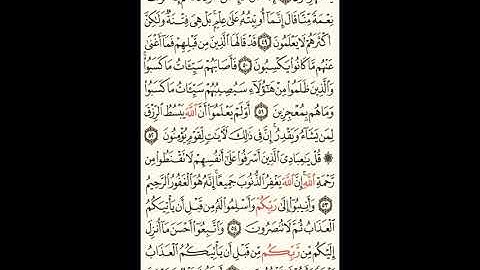 نِعْمَةً مِّنَّا قَالَ إِنَّمَآ أُوتِيتُهُۥ عَلَىٰ عِلْمٍۭ ۚ بَلْ هِىَ فِتْنَةٌ وَلَـٰكِنَّ
أَكْثَرَهُمْ لَا يَعْلَمُونَ ٤٩ قَدْ قَالَهَا ٱلَّذِينَ مِن قَبْلِهِمْ فَمَآ أَغْنَىٰ
عَنْهُم مَّا كَانُوا۟ يَكْسِبُونَ ٥٠ فَأَصَابَهُمْ سَيِّـَٔاتُ مَا كَسَبُوا۟ ۚ
وَٱلَّذِينَ ظَلَمُوا۟ مِنْ هَـٰٓؤُلَآءِ سَيُصِيبُهُمْ سَيِّـَٔاتُ مَا كَسَبُوا۟
وَمَا هُم بِمُعْجِزِينَ ٥١ أَوَلَمْ يَعْلَمُوٓا۟ أَنَّ ٱللَّهَ يَبْسُطُ ٱلرِّزْقَ
لِمَن يَشَآءُ وَيَقْدِرُ ۚ إِنَّ فِى ذَٰلِكَ لَـَٔايَـٰتٍ لِّقَوْمٍ يُؤْمِنُونَ ٥٢
۞ قُلْ يَـٰعِبَادِىَ ٱلَّذِينَ أَسْرَفُوا۟ عَلَىٰٓ أَنفُسِهِمْ لَا تَقْنَطُوا۟ مِن
رَّحْمَةِ ٱللَّهِ ۚ إِنَّ ٱللَّهَ يَغْفِرُ ٱلذُّنُوبَ جَمِيعًا ۚ إِنَّهُۥ هُوَ ٱلْغَفُورُ ٱلرَّحِيمُ
٥٣ وَأَنِيبُوٓا۟ إِلَىٰ رَبِّكُمْ وَأَسْلِمُوا۟ لَهُۥ مِن قَبْلِ أَن يَأْتِيَكُمُ
ٱلْعَذَابُ ثُمَّ لَا تُنصَرُونَ ٥٤ وَٱتَّبِعُوٓا۟ أَحْسَنَ مَآ أُنزِلَ
إِلَيْكُم مِّن رَّبِّكُم مِّن قَبْلِ أَن يَأْتِيَكُمُ ٱلْعَذَابُ